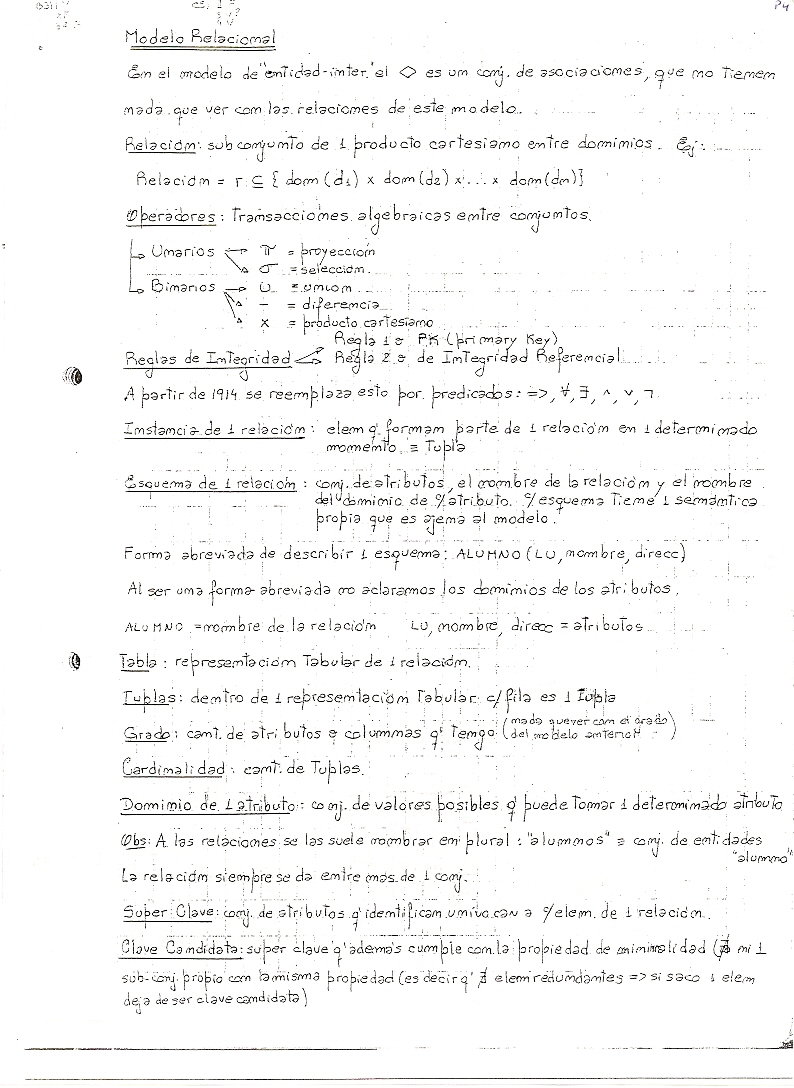 P4
Modelo Relacional
En el modelo de "entidad-inter." el ◇ es un conj. de asociaciones, que no tienen
nada que ver con las relaciones de este modelo.
Relación: subconjunto de 1 producto cartesiano entre dominios. Ej:
Relación = r ⊆ { dom (d1) x dom (d2) x ... x dom (dn)}
Operadores: Transacciones algebraicas entre conjuntos.
Unarios → π = proyección
σ = selección
Binarios → ∪ = union
- = diferencia
x = producto cartesiano
Regla 1 = PK (primary Key)
Reglas de Integridad Regla 2 = de Integridad Referencial
A partir de 1914 se reemplaza esto por predicados: =>, ∀, ∃, ∧, ∨, ¬
Instancia de 1 relación: elem q' forman parte de 1 relación en 1 determinado
momento. ≡ Tupla
Esquema de 1 relación: conj. de atributos, el nombre de la relación y el nombre
del dominio de c/atributo. c/esquema tiene 1 semántica
propia que es ajena al modelo.
Forma abreviada de describir 1 esquema: ALUMNO (LU, nombre, direcc)
Al ser una forma abreviada no aclaramos los dominios de los atributos.
ALUMNO = nombre de la relación LU, nombre, direcc = atributos
Tabla: representación Tabular de 1 relación.
Tuplas: dentro de 1 representación Tabular c/fila es 1 Tupla
Grado: cant. de atributos o columnas q' tengo (nada que ver con el grado
del modelo anterior)
Cardinalidad: cant. de Tuplas.
Dominio de 1 atributo: conj. de valores posibles q' puede tomar 1 determinado atributo
Obs: A las relaciones se las suele nombrar en plural: "alumnos" ≡ conj. de entidades
"alumno"
La relación siempre se da entre más de 1 conj.
Super Clave: conj. de atributos q' identifican univocan a c/elem. de 1 relación.
Clave Candidata: super clave q' además cumple con la propiedad de minimalidad (∄ ni 1
sub-conj. propio con la misma propiedad (es decir q' ∄ elem redundantes => si saco 1 elem
deja de ser clave candidata)